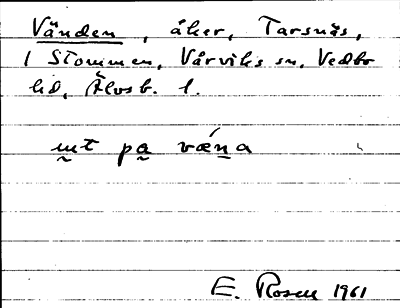 Vänden, åker, Tarsnäs,
1 Stommen, Vårviks sn, Vedbo
hd, Älvsb. l.
ut på vǽna
E. Rosell 1961